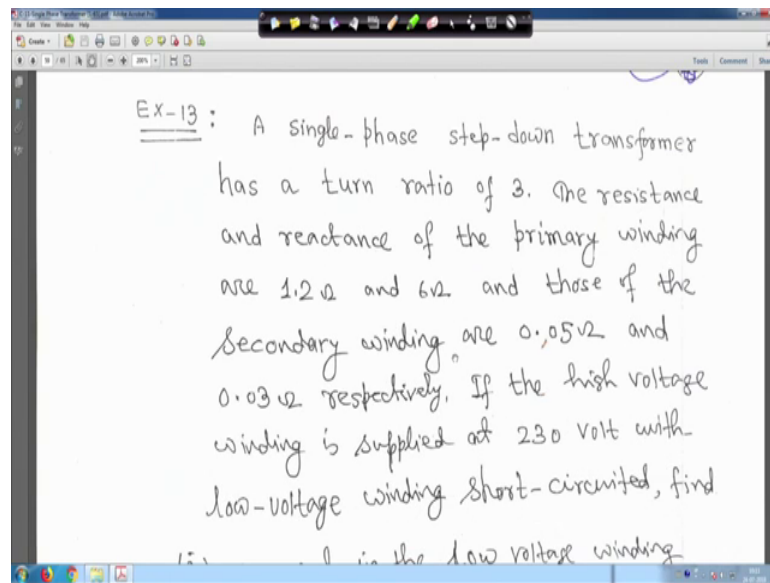 File Edit View Window Help
Create
200%
Tools Comment
Ex-13 : A single-phase step-down transformer
has a turn ratio of 3. The resistance
and reactance of the primary winding
are 1.2Ω and 6Ω and those of the
secondary winding are 0.05Ω and
0.03Ω respectively. If the high voltage
winding is supplied at 230 volt with
low-voltage winding short-circuited, find
in the low voltage winding